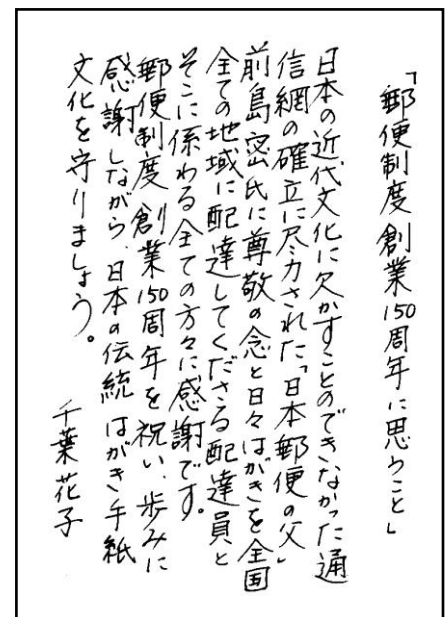 「郵便制度創業150周年に思うこと」
日本の近代文化に欠かすことのできなかった通
信網の確立に尽力された「日本郵便の父」
前島密氏に尊敬の念と日々はがきを全国
全ての地域に配達してくださる配達員と
そこに係わる全ての方々に感謝です。
郵便制度創業150周年を祝い、歩みに
感謝しながら、日本の伝統はがき手紙
文化を守りましょう。
千葉花子